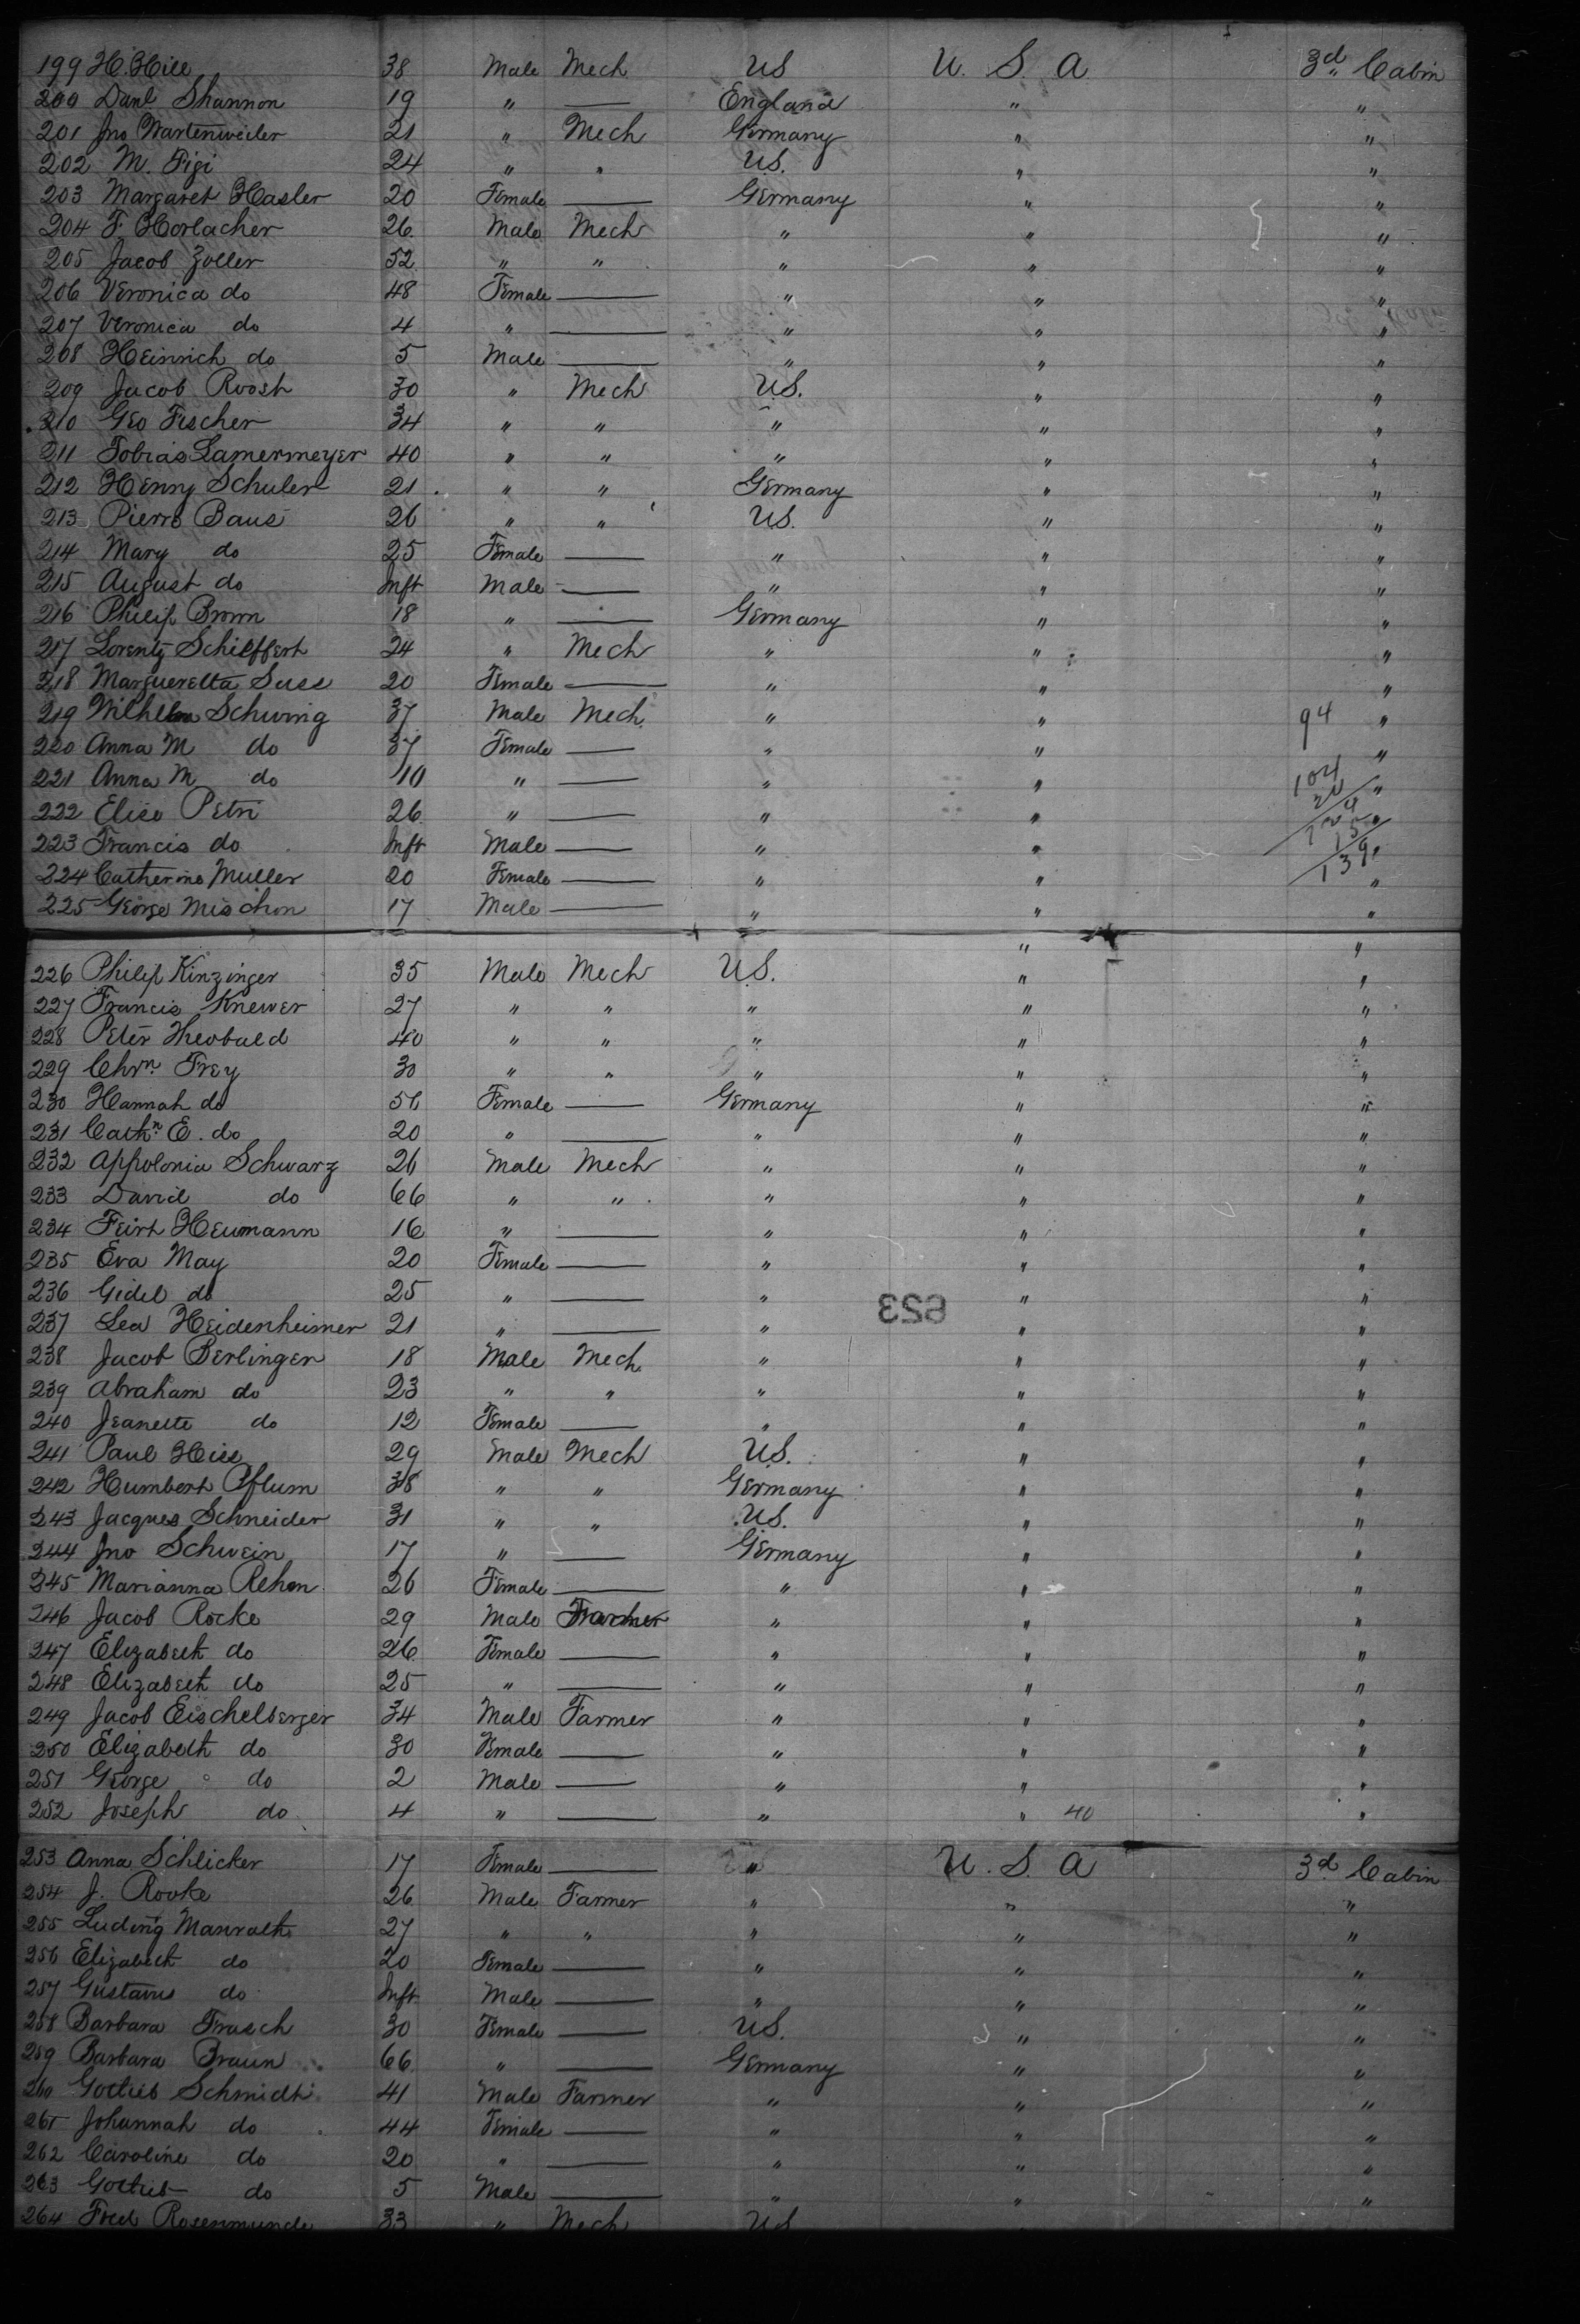 199 H. Hill 38 Male Mech US U. S. A 3d Cabin
200 Danl Shannon 19 " — England " "
201 Jno Wartenweiler 21 " Mech Germany " "
202 M. Figi 24 " " U.S. " "
203 Margaret Hasler 20 Female — Germany " "
204 F. Horlacher 26 Male Mech " " "
205 Jacob Zoller 52 " " " " "
206 Veronica do 48 Female — " " "
207 Veronica do 4 " — " " "
208 Heinrich do 5 Male — " " "
209 Jacob Roost 30 " Mech U.S. " "
210 Geo Fischer 34 " " " " "
211 Tobias Lamermeyer 40 " " " " "
212 Henry Schuler 21 " " Germany " "
213 Pierre Baus 26 " " U.S. " "
214 Mary do 25 Female — " " "
215 August do Inft Male — " " "
216 Philip Brown 18 " — Germany " "
217 Lorentz Schilffert 24 " Mech " " "
218 Margueretta Suss 20 Female — " " "
219 Wilhelm Schwing 37 Male Mech " " 94 "
220 Anna M do 37 Female — " " "
221 Anna M do 10 " — " " 104 "
222 Elise Petri 26 " — " " "
223 Francis do Inft Male — " " "
224 Catherine Muller 20 Female — " " 139 "
225 George Mischon 17 Male — " " "
" "
226 Philip Kinzinger 35 Male Mech U.S. " "
227 Francis Knewer 27 " " " " "
228 Peter Theobald 40 " " " " "
229 Chrn. Frey 30 " " " " "
230 Hannah do 56 Female — Germany " "
231 Cathn. E. do 20 " — " " "
232 Appolonia Schwarz 26 Male Mech " " "
233 David do 66 " " " " "
234 Feirt Heumann 16 " — " " "
235 Eva May 20 Female — " " "
236 Gidel do 25 " — " " "
623
237 Lea Heidenheimer 21 " — " " "
238 Jacob Berlinger 18 Male Mech " " "
239 Abraham do 23 " " " " "
240 Jeanette do 12 Female — " " "
241 Paul Hiss 29 Male Mech U.S. " "
242 Humbert Pflum 38 " " Germany " "
243 Jacques Schneider 31 " " U.S. " "
244 Jno Schwein 17 " — Germany " "
245 Marianna Rehm 26 Female — " " "
246 Jacob Rocke 29 Male Farmer " " "
247 Elizabeth do 26 Female — " " "
248 Elizabeth do 25 " — " " "
249 Jacob Eischelberger 34 Male Farmer " " "
250 Elizabeth do 30 Female — " " "
251 George do 2 Male — " " "
252 Joseph do 4 " — " " 40 "
253 Anna Schlicker 17 Female — " U. S. A 3d Cabin
254 J. Rooke 26 Male Farmer " " "
255 Ludwig Manrath 27 " " " " "
256 Elizabeth do 20 Female — " " "
257 Gustavus do Inft Male — " " "
258 Barbara Frasch 30 Female — U.S. " "
259 Barbara Braun 66 " — Germany " "
260 Gottlieb Schmidt 41 Male Farmer " " "
261 Johannah do 44 Female — " " "
262 Caroline do 20 " — " " "
263 Gottlieb do 5 Male — " " "
264 Fred Rosenmunde 33 " Mech US